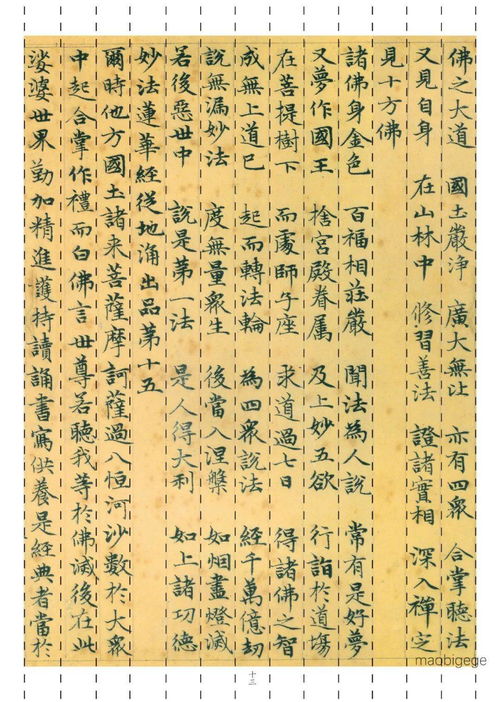 佛之大道 國土嚴淨 廣大無比 亦有四眾 合掌聽法
又見自身 在山林中 修習善法 證諸實相 深入禪定
見十方佛
諸佛身金色 百福相莊嚴 聞法為人說 常有是好夢
又夢作國王 捨宮殿眷属 及上妙五欲 行詣於道場
在菩提樹下 而處師子座 求道過七日 得諸佛之智
成無上道已 起而轉法輪 為四眾說法 經千萬億劫
說無漏妙法 度無量眾生 後當入涅槃 如烟盡燈滅
若後惡世中 說是第一法 是人得大利 如上諸功德
妙法蓮華經從地涌出品第十五
爾時他方國土諸來菩薩摩訶薩過八恒河沙數於大眾
中起合掌作禮而白佛言世尊若聽我等於佛滅後在此
娑婆世界勤加精進護持讀誦書寫供養是經典者當於
十三
maobigege